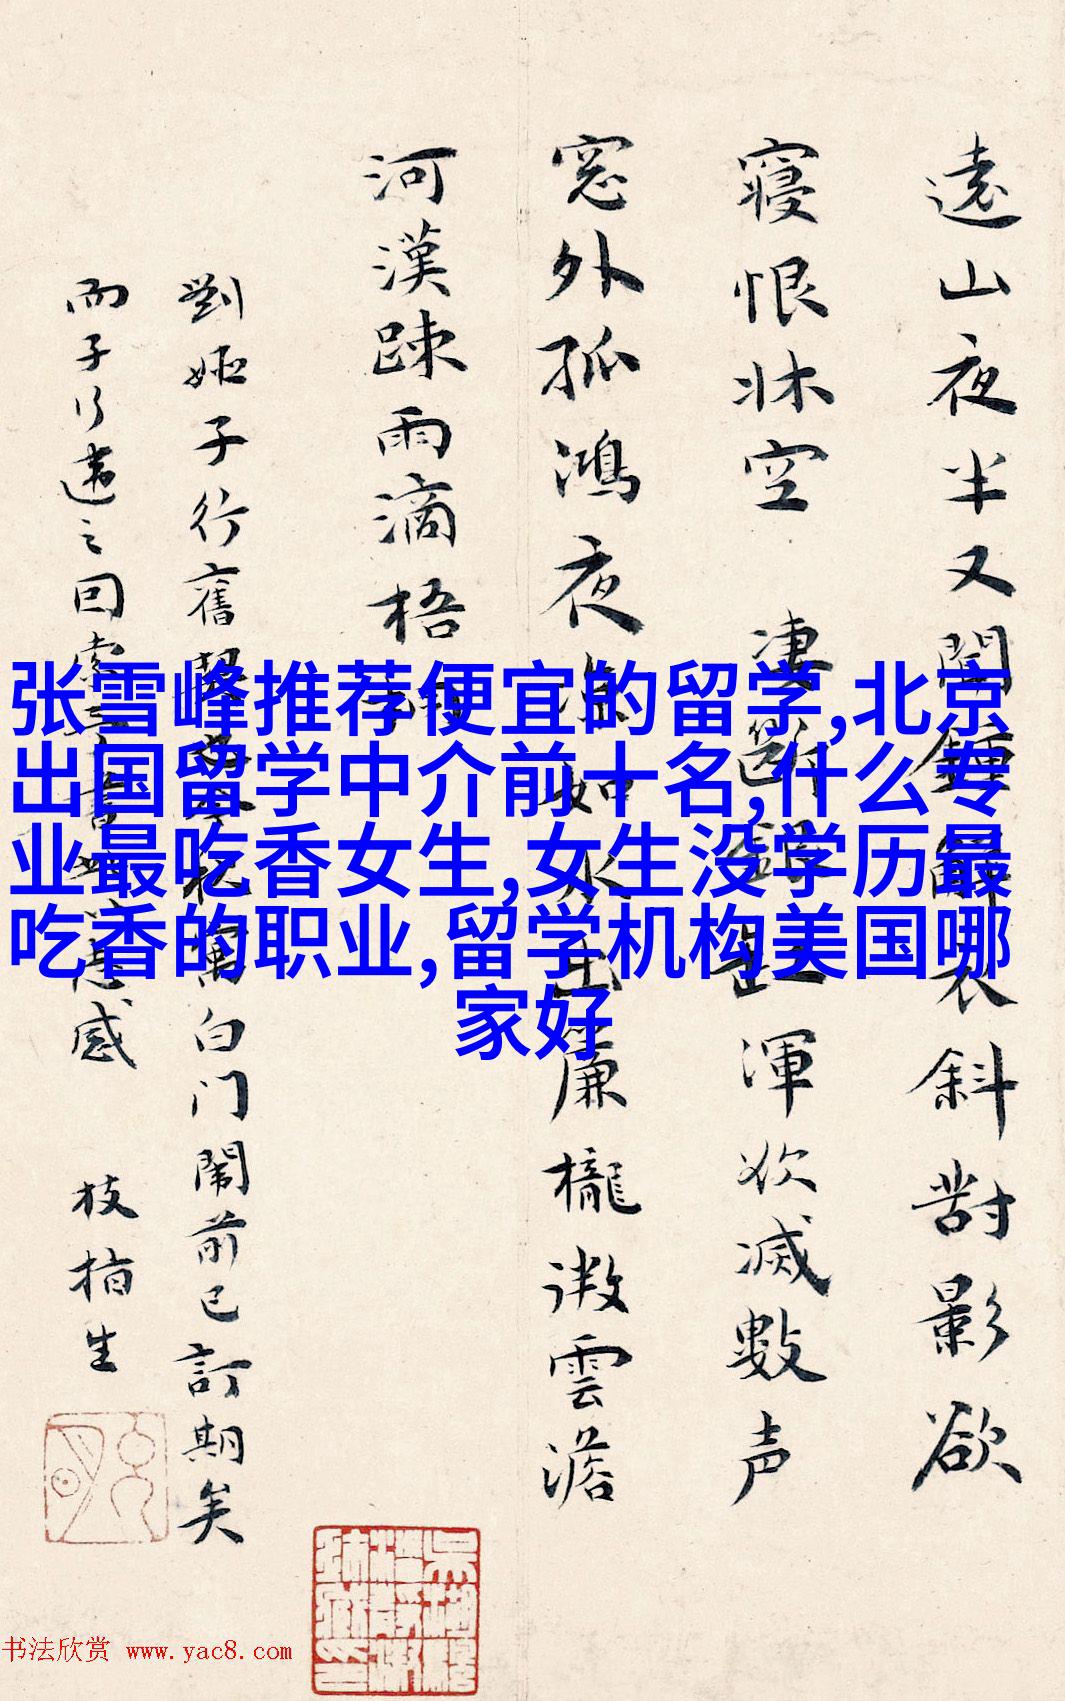 遠山夜半又聞鐘解衣斜對影欲
寢恨牀空 凄斷銀缸渾欲滅數声
窓外孤鴻夜涼如水出簾櫳微雲澹
河漢踈雨滴梧桐
劉姬子行舊
白门閙前已訂期矣
而子行違之回
感 枝指生
张雪峰推荐便宜的留学,北京
出国留学中介前十名,什么专
业最吃香女生,女生没学历最
吃香的职业,留学机构美国哪
家好
书法欣赏 www.yac8.com